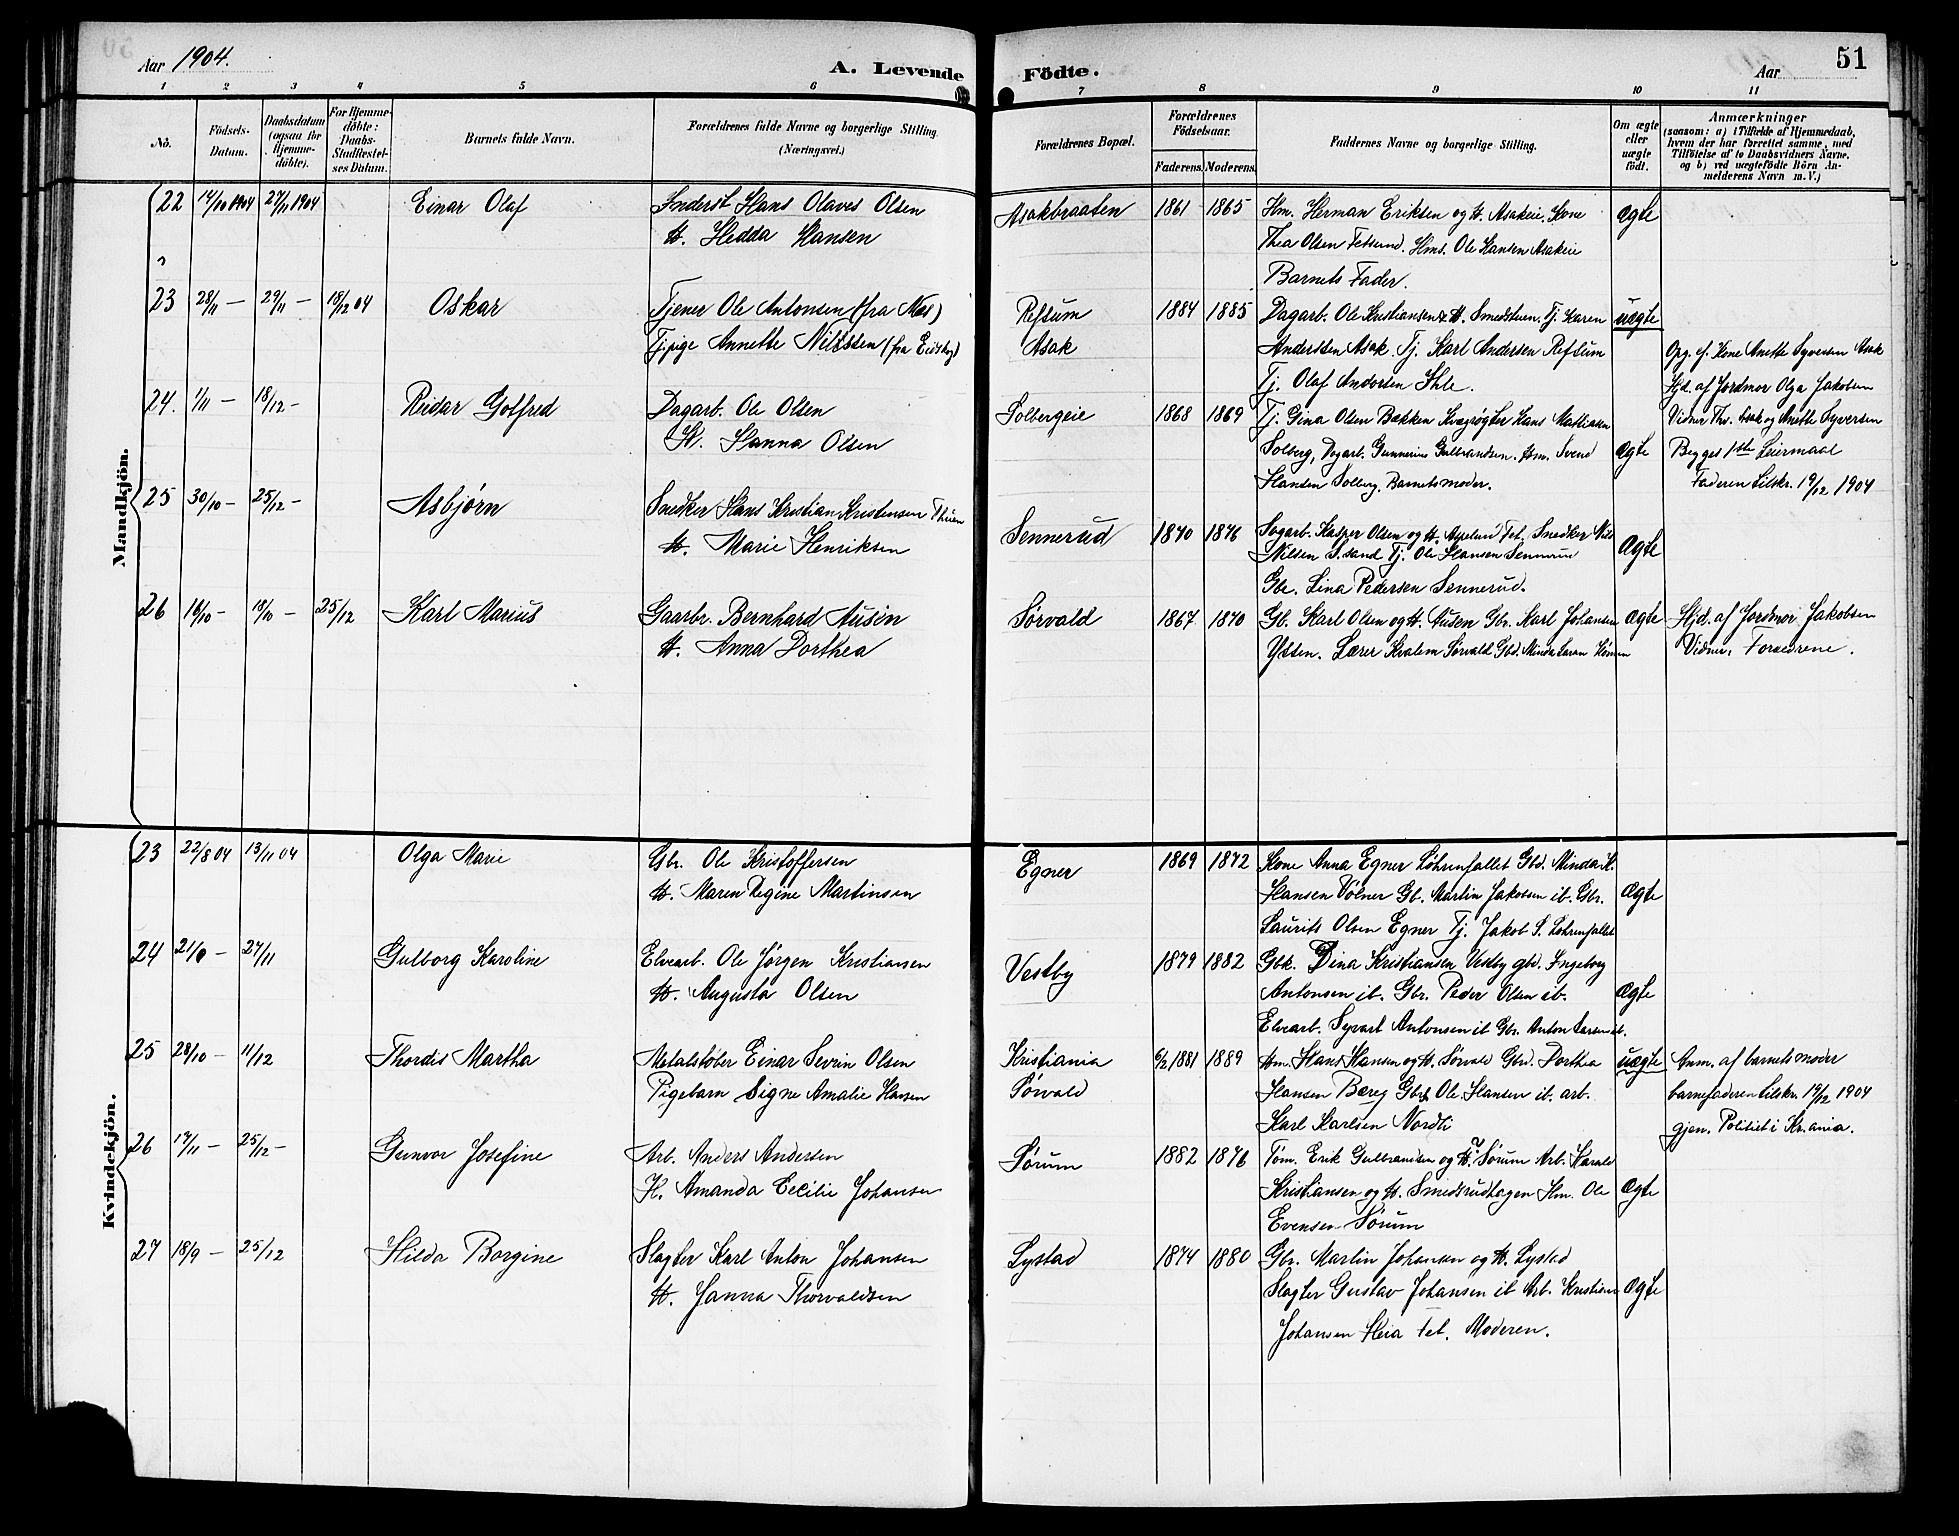 Aar 1904.
A. Levende Födte.
Aar
51
1 2 3 4 5 6 7 8 9 10 11
No.
Födsels-Datum.
Daabsdatum (ogsaa för Hjemme-döbte).
For Hjemme-döbte: Daabs-Stadfæstel-ses Datum.
Barnets fulde Navn.
Forældrenes fulde Navne og borgerlige Stilling. (Næringsvei.)
Forældrenes Bopæl.
Forældrenes Födselsaar.
Faderens. Moderens.
Faddernes Navne og borgerlige Stilling.
Om ægte eller uægte födt.
Anmærkninger
(saasom: a) i Tilfælde af Hjemmedaab,
hvem der har forrettet samme, med
Tilföielse af to Daabsvidners Navne,
og b) ved uægtefödte Börn An-
melderens Navn m. V.)
Mandkjön.
22 14/10 1904 27/11 1904 Einar Olaf Inderst Hans Olaves Olsen Asakbraaten 1861 1865 Hm. Herman Eriksen og H. Asakeie. Kone ægte
H. Hedda Hansen Thea Olsen Fetsund. Hms. Ole Hansen Asakeie
Barnets Fader.
23 28/11 — 29/11 — 18/12 04 Oskar Tjener Ole Antonsen (fra Næs) Refsum 1884 1885 Dagarb. Ole Kristiansen & H. Smedstuen. Tj. Karen uægte
Tjpige Annette Nilssen (fra Eidskog) Asak Anderssen Asak. Tj. Karl Andersen Refsum Opg. af Kone Anette Syversen Asak
Tj. Olaf Andersen Ihle. Hjd. af Jordmor Olga Jakobsen
24. 1/11 — 18/12 — Reidar Golfred Dagarb. Ole Olsen Solbergeie 1868 1869 Tj. Gina Olsen Bakken Kvægrøgter Hans Mathiasen Vidner Thv. Asak og Anette Syversen
H. Hanna Olsen Solberg, Dagarb. Gunnerius Gulbrandsen. Hm. Svend ægte Begges 1ste Leiermaal
Hansen Solberg. Barnets moder. Faderen tilskr. 19/12 1904
25 30/10 — 25/12 — Asbjørn Snedker Hans Kristian Kristensen Thuen Sennerud 1870 1876 Sagarb. Kasper Olsen og H. Fet. Snedker Nils ægte
H. Marie Henriksen Nilsen S.sand Tj. Ole Hansen Sennerud
Gbe. Lina Pedersen Sennerud.
26 16/10 — 18/10 — 25/12 Karl Marius Gaarbr. Bernhard Ausen Sørvald 1867 1870 Gb. Karl Olsen og H. Ausen Gbr. Karl Johansen ægte Hjd. af Jordmor Jakobsen
H. Anna Dorthea Lærer Kvalem Sørvald Gbd. Minda Vidner, Foræedrene.
Kvindekjön.
23 22/8 04 13/11 04 Olga Marie Gbr. Ole Kristoffersen Egner 1869 1872 Kone Anna Egner Løhrenfallet Gbd. Minda H.
H. Maren Regine Martinsen Hansen Vølner Gb. Martin Jakobsen ib. Gbr. ægte
Laurits Olsen Egner Tj. Jakob S. Løhrenfallet
24 21/9 — 27/11 Gulborg Karoline Elvearb. Ole Jørgen Kristiansen Vestby 1879 1882 Gbk. Dina Kristiansen Vestby gbd. Ingeborg
H. Augusta Olsen Antonsen ib. Gbr. Peder Olsen ib. ægte
Elvearb. Syvart Antonsen ib Gbr. Anton Larsen ib.
25 28/10 — 11/12 Thordis Martha Metalstøber Einar Severin Olsen Kristiania 6/2 1881 1889 Hm. Hans Hansen og H. Sørvald Gbd. Dorthea uægte Anm. af barnets moder
Pigebarn Signe Amalie Hansen Sørvald Hansen Bereg Gbr. Ole Hansen ib. arb. barnefaderen tilskr. 19/12 1904
Karl Karlsen Nordli gjen. Politiet i Kr.ania.
26 17/11 — 25/12 — Gunvor Josefine Arb. Anders Andersen Sørum 1882 1876 Tøm. Erik Gulbrandsen og H. Sørum Arb. Harald
H. Amanda Cecilie Johansen Kristiansen og H. Smedsrudhagen Hm. Ole ægte
Evensen Sørum
27 18/9 — 25/12 Hilda Borgine Slagter Karl Anton Johansen Lystad 1874 1880 Gbr. Martin Johansen og H. Lystad
H. Janna Thorvaldsen Slagter Gustav Johansen ib Arb. Kristian ægte
Johansen Heia Fet. Moderen.